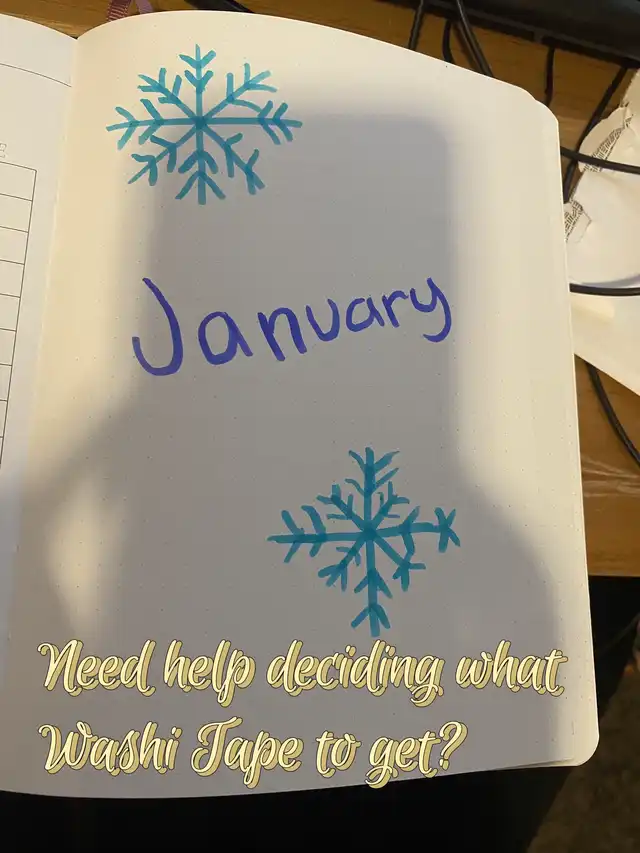 January
Need help deciding what
Washi Tape to get?